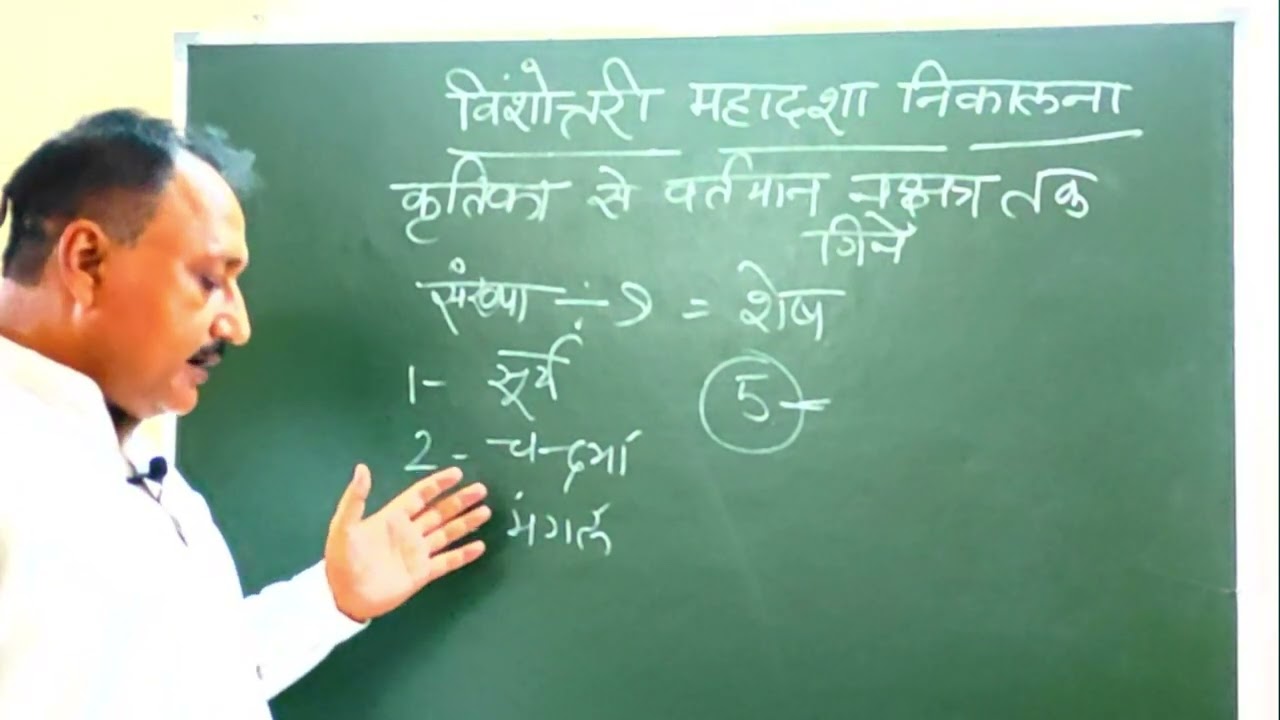 विंशोत्तरी महादशा निकालना
कृतिका से वर्तमान नक्षत्र तक
गिनें
संख्या ÷ 9 = शेष
1- सूर्य
5-
2- चन्द्रमां
मंगल